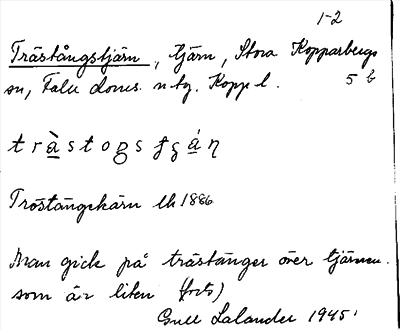 1-2
Trästångstjärn, tjärn, Stora Kopparbergs
sn, Falu doms. n tg. Kopp l. 5 b
Tröstångskärn lk 1886
Man gick på trästänger över tjärnen
som är liten (forts)
Gull Lalander 1945